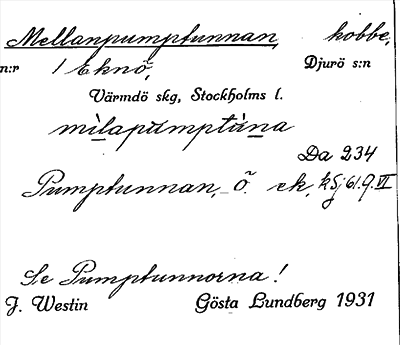 Mellanpumptunnan, kobbe,
n:r 1 Eknö, Djurö s:n
Värmdö skg, Stockholms l.
milapumptuna
Da 234
Pumptunnan, ö. ek.
Se Pumptunnorna!
J. Westin Gösta Lundberg 1931